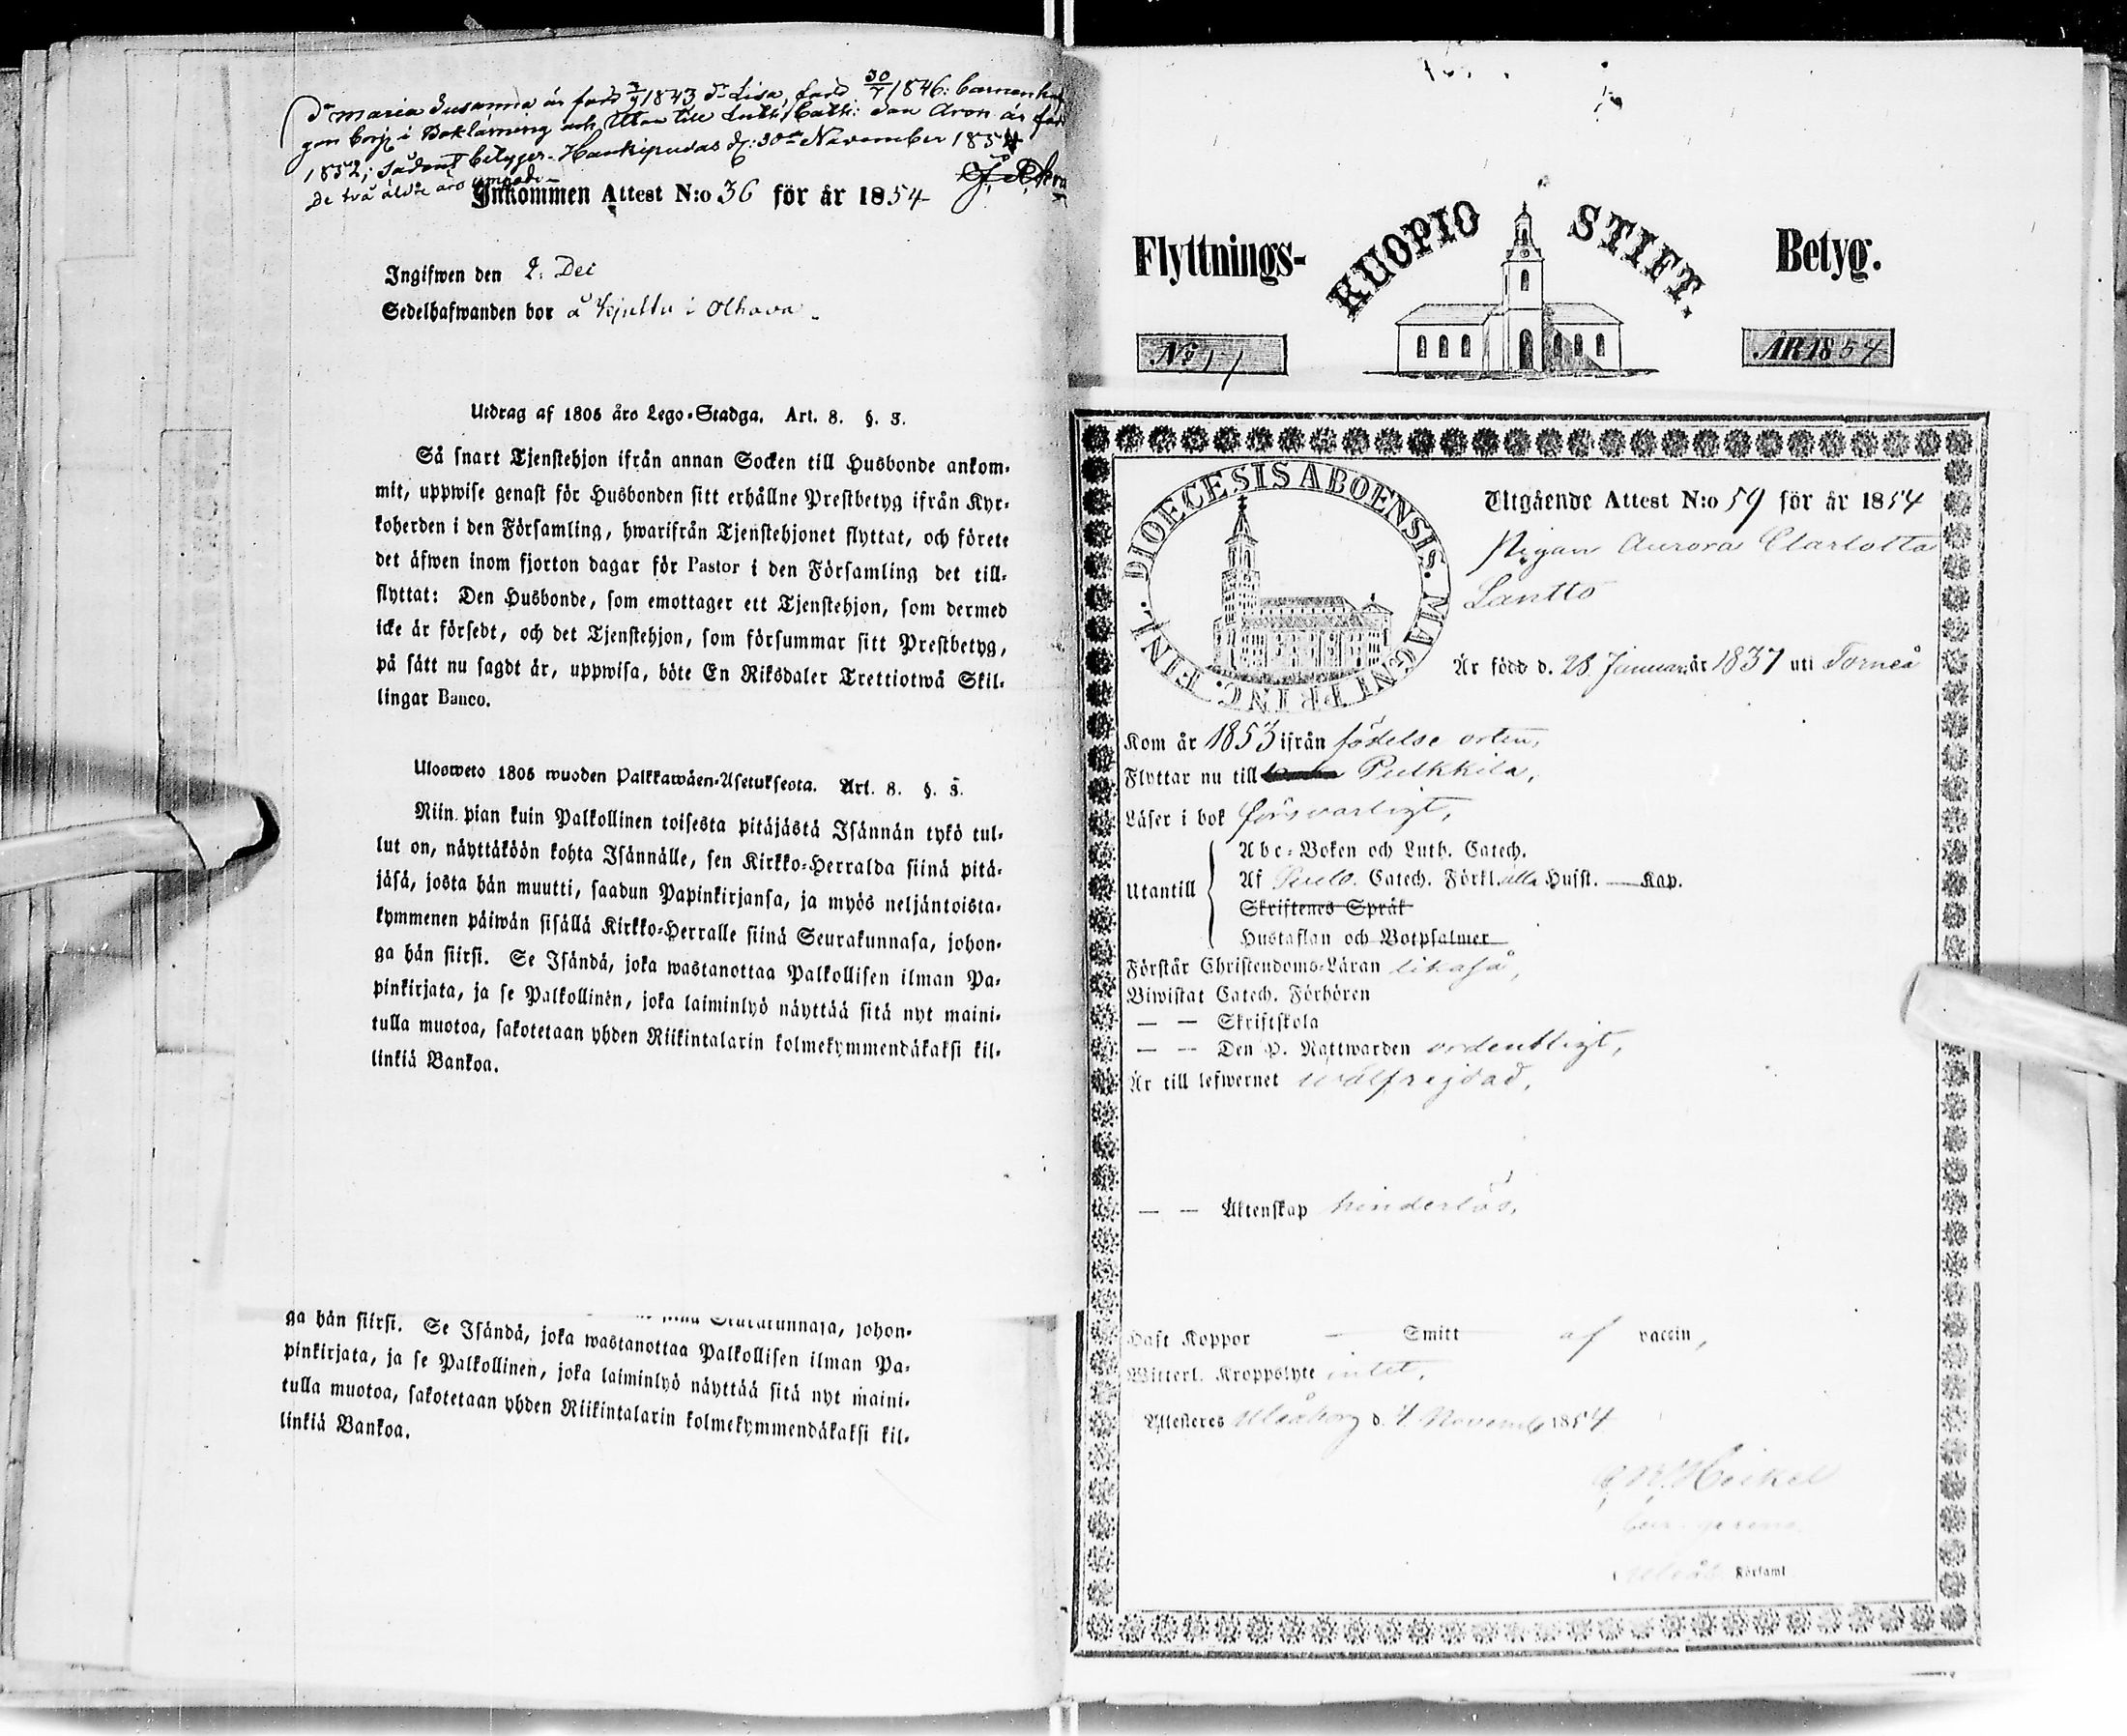 Dr Maria Susanna är född 3/9 1843, Dr Lisa, född 30/7 1846: barnen
gon börj i Boklärning och Utan till Luth: Cath: Son Aron är föd
1852; Sådant betyger. Haukipudas d: 30de November 1854
De två äldre äro ympade
Inkommen Attest N:o 36 för år 1854
Ingifwen den 2. Dec
Sedelhafwanden bor å i Olhava.
Utdrag af 1805 åro Lego-Stadga. Art. 8. §. 3.
Så snart Tjenstehjon ifrån annan Socken till Husbonde ankom-
mit, uppwise genast för Husbonden sitt erhållne Prestbetyg ifrån Kyr-
koherden i den Församling, hwarifrån Tjenstehjonet flyttat, och förete
det äfwen inom fjorton dagar för Pastor i den Församling det till-
flyttat: Den Husbonde, som emottager ett Tjenstehjon, som dermed
icke är försedt, och det Tjenstehjon, som försummar sitt Prestbetyg,
på sätt nu sagdt är, uppwisa, böte En Riksdaler Trettiotwå Skil-
lingar Banco.
Ulosweto 1805 wuoden Palkkawäen-Asetuksesta. Art. 8. §. 3.
Niin pian kuin Palkollinen toisesta pitäjästä Isännän tykö tul-
lut on, näyttäköön kohta Isännälle, sen Kirkko-Herralda siinä pitä-
jäsä, josta hän muutti, saadun Papinkirjansa, ja myös neljäntoista-
kymmenen päiwän sisällä Kirkko-Herralle siinä Seurakunnasa, johon-
ga hän siirsi. Se Isändä, joka wastanottaa Palkollisen ilman Pa-
pinkirjata, ja se Palkollinen, joka laiminlyö näyttää sitä nyt maini-
tulla muotoa, sakotetaan yhden Riikintalarin kolmekymmendäkaksi kil-
linkiä Bankoa.
Seurakunnasa, johon-
ga hän siirsi. Se Isändä, joka wastanottaa Palkollisen ilman Pa-
pinkirjata, ja se Palkollinen, joka laiminlyö näyttää sitä nyt maini-
tulla muotoa, sakotetaan yhden Riikintalarin kolmekymmendäkaksi kil-
linkiä Bankoa.
Flyttnings- KUOPIO STIFT. Betyg.
No 17 ÅR 1854
DIOECESIS ABOENSIS. MAGNI PRINC. FINL.
Utgående Attest N:o 59 för år 1854
Pigan Aurora Charlotta
Lantto
Är född d. 28 Januari år 1837 uti Torneå
Kom år 1853 ifrån födelse orten,
Flyttar nu till Pulkkila,
Läser i bok försvarligt,
Utantill
Abc-Boken och Luth. Catech.
Af Catech. Förkl. alla Hufst. — Kap.
Skriftenes Språk
Hustaflan och Botpsalmer
Förstår Christendoms-Läran likaså,
Biwistat Catech. Förhören
— — Skriftskola
— — Den H. Nattwarden ordentligt,
Är till lefwernet wälfrejdad,
— — Äktenskap hinderlös,
Haft Koppor — Smitt af vaccin,
Witterl. Kroppslyte intet,
Attesteras Uleåborg d. 4 Novemb 1854
Heikel
Uleåb. Församl.